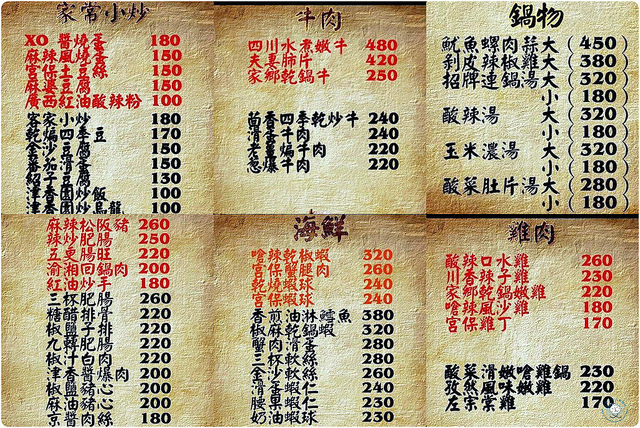 家常小炒
XO 醬燒蛋 180
麻辣風燒蛋 150
宮保土豆絲 150
麻婆豆腐 150
廣西紅油酸辣粉 100
客家小炒 180
乾煸四季豆 170
金沙豆腐 150
茄子滑蛋 150
紹子豆腐 130
津香園炒飯 100
津香園炒烏龍 100
牛肉
四川水煮嫩牛 480
夫妻肺片 420
家鄉乾鍋牛 250
茴香四季乾炒牛 240
滑蛋牛肉 240
老薑煸牛肉 220
蔥爆牛肉 220
鍋物
魷魚螺肉蒜 大 ( 450 )
剁皮辣椒雞 大 ( 380 )
招牌連鍋湯 大 ( 320 )
小 ( 180 )
酸辣湯 大 ( 320 )
小 ( 180 )
玉米濃湯 大 ( 320 )
小 ( 180 )
酸菜肚片湯 大 ( 280 )
小 ( 180 )
麻辣松阪豬 260
辣炒肥腸 250
五更腸旺 220
渝湘回鍋肉 200
紅油炒手 180
三杯肥腸 260
糖醋排骨 220
椒鹽子排 220
九轉肥腸 220
椒汁白肉 220
津香醬爆肉 200
椒鹽豬心 200
麻油豬心 200
京醬肉絲 180
海鮮
嗆辣乾椒蝦 320
宮保蟹腿肉 260
乾燒蝦球 240
宮保蝦球 240
香煎油淋鱈魚 380
椒麻乾鍋蝦 320
蟹肉滑蛋 280
三杯軟絲 280
金沙軟絲 260
滑蛋蝦仁 240
腰果蝦仁 230
奶油蝦球 230
雞肉
酸辣口水雞 260
川香辣子雞 230
家鄉乾鍋嫩雞 220
嗆辣風沙雞 180
宮保雞丁 170
酸菜滑嫩嗆雞鍋 230
孜然風味嫩雞 220
左宗棠雞 170